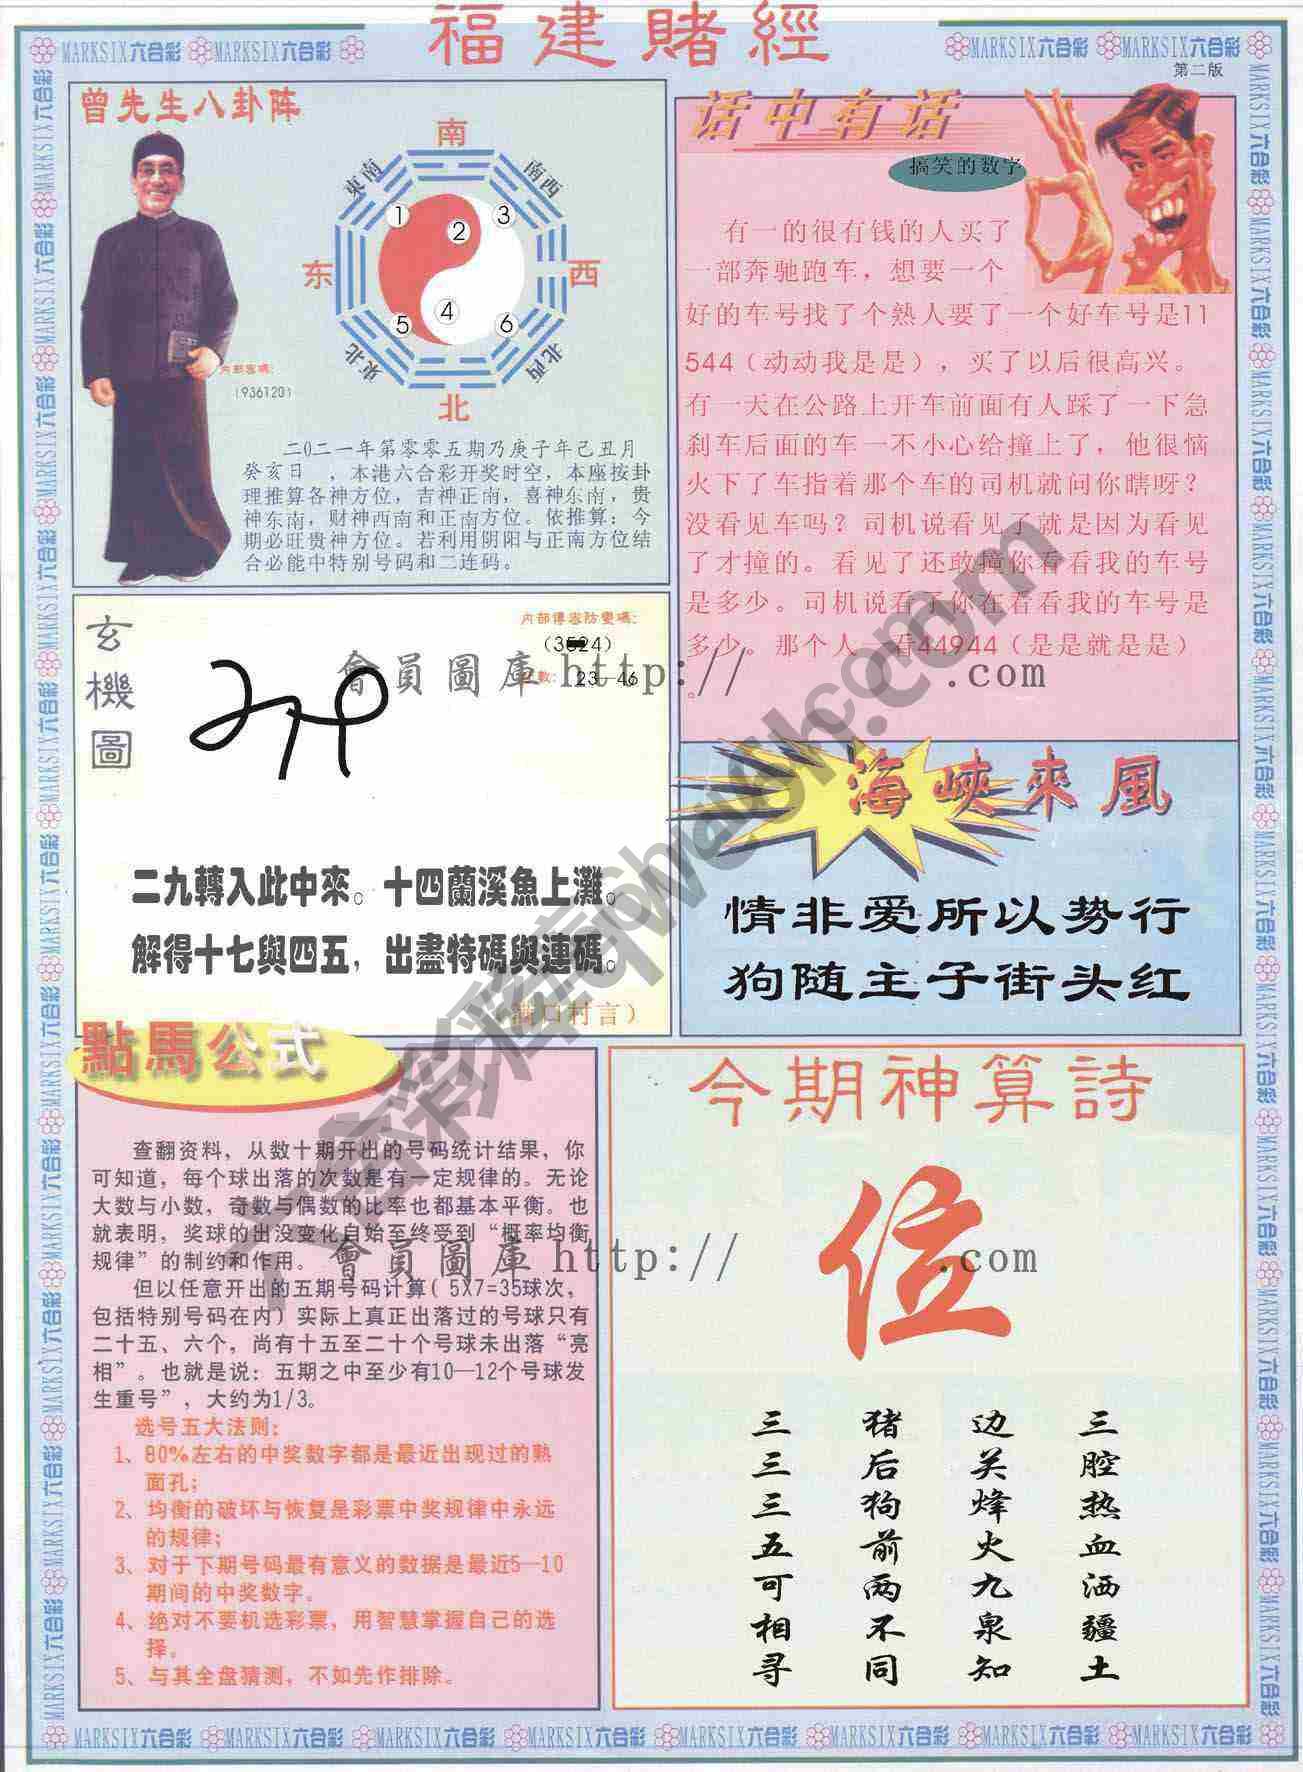 福建賭經
MARKSIX六合彩 MARKSIX六合彩
MARKSIX六合彩 MARKSIX六合彩
第二版
曾先生八卦阵
南
東南
南西
东
西
東北
北西
北
1
2
3
4
5
6
内部密碼：
（936120）
二0二一年第零零五期乃庚子年己丑月
癸亥日 ，本港六合彩开奖时空，本座按卦
理推算各神方位，吉神正南，喜神东南，贵
神东南，财神西南和正南方位。依推算：今
期必旺贵神方位。若利用阴阳与正南方位结
合必能中特别号码和二连码。
话中有话
搞笑的数字
有一的很有钱的人买了
一部奔驰跑车，想要一个
好的车号找了个熟人要了一个好车号是11
544（动动我是是），买了以后很高兴。
有一天在公路上开车前面有人踩了一下急
刹车后面的车一不小心给撞上了，他很恼
火下了车指着那个车的司机就问你瞎呀？
没看见车吗？司机说看见了就是因为看见
了才撞的。看见了还敢撞你看看我的车号
是多少。司机说看了你在看看我的车号是
多少。那个人一看44944（是是就是是）
。
玄機圖
内部傳密防變碼：
數：23—46
會員圖庫 http:// .com
二九轉入此中來。十四蘭溪魚上灘。
解得十七與四五，出盡特碼與連碼。
（满口村言）
海峽來風
情非爱所以势行
狗随主子街头红
點馬公式
查翻资料，从数十期开出的号码统计结果，你
可知道，每个球出落的次数是有一定规律的。无论
大数与小数，奇数与偶数的比率也都基本平衡。也
就表明，奖球的出没变化自始至终受到“概率均衡
规律”的制约和作用。
但以任意开出的五期号码计算（5X7=35球次，
包括特别号码在内）实际上真正出落过的号球只有
二十五、六个，尚有十五至二十个号球未出落“亮
相”。也就是说：五期之中至少有10—12个号球发
生重号”，大约为1/3。
选号五大法则：
1、80%左右的中奖数字都是最近出现过的熟
面孔；
2、均衡的破坏与恢复是彩票中奖规律中永远
的规律；
3、对于下期号码最有意义的数据是最近5—10
期间的中奖数字。
4、绝对不要机选彩票，用智慧掌握自己的选
择。
5、与其全盘猜测，不如先作排除。
會員圖庫 http:// .com
今期神算詩
位
三腔热血洒疆土
边关烽火九泉知
猪后狗前两不同
三三三五可相寻
MARKSIX六合彩 MARKSIX六合彩 MARKSIX六合彩 MARKSIX六合彩 MARKSIX六合彩 MARKSIX六合彩 MARKSIX六合彩 MARKSIX六合彩